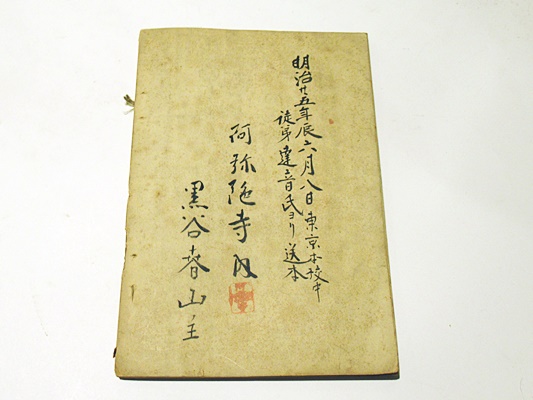 明治廿五年辰六月八日東京本校中
徒弟達音氏ヨリ送本
阿弥陀寺内
黒谷春山主